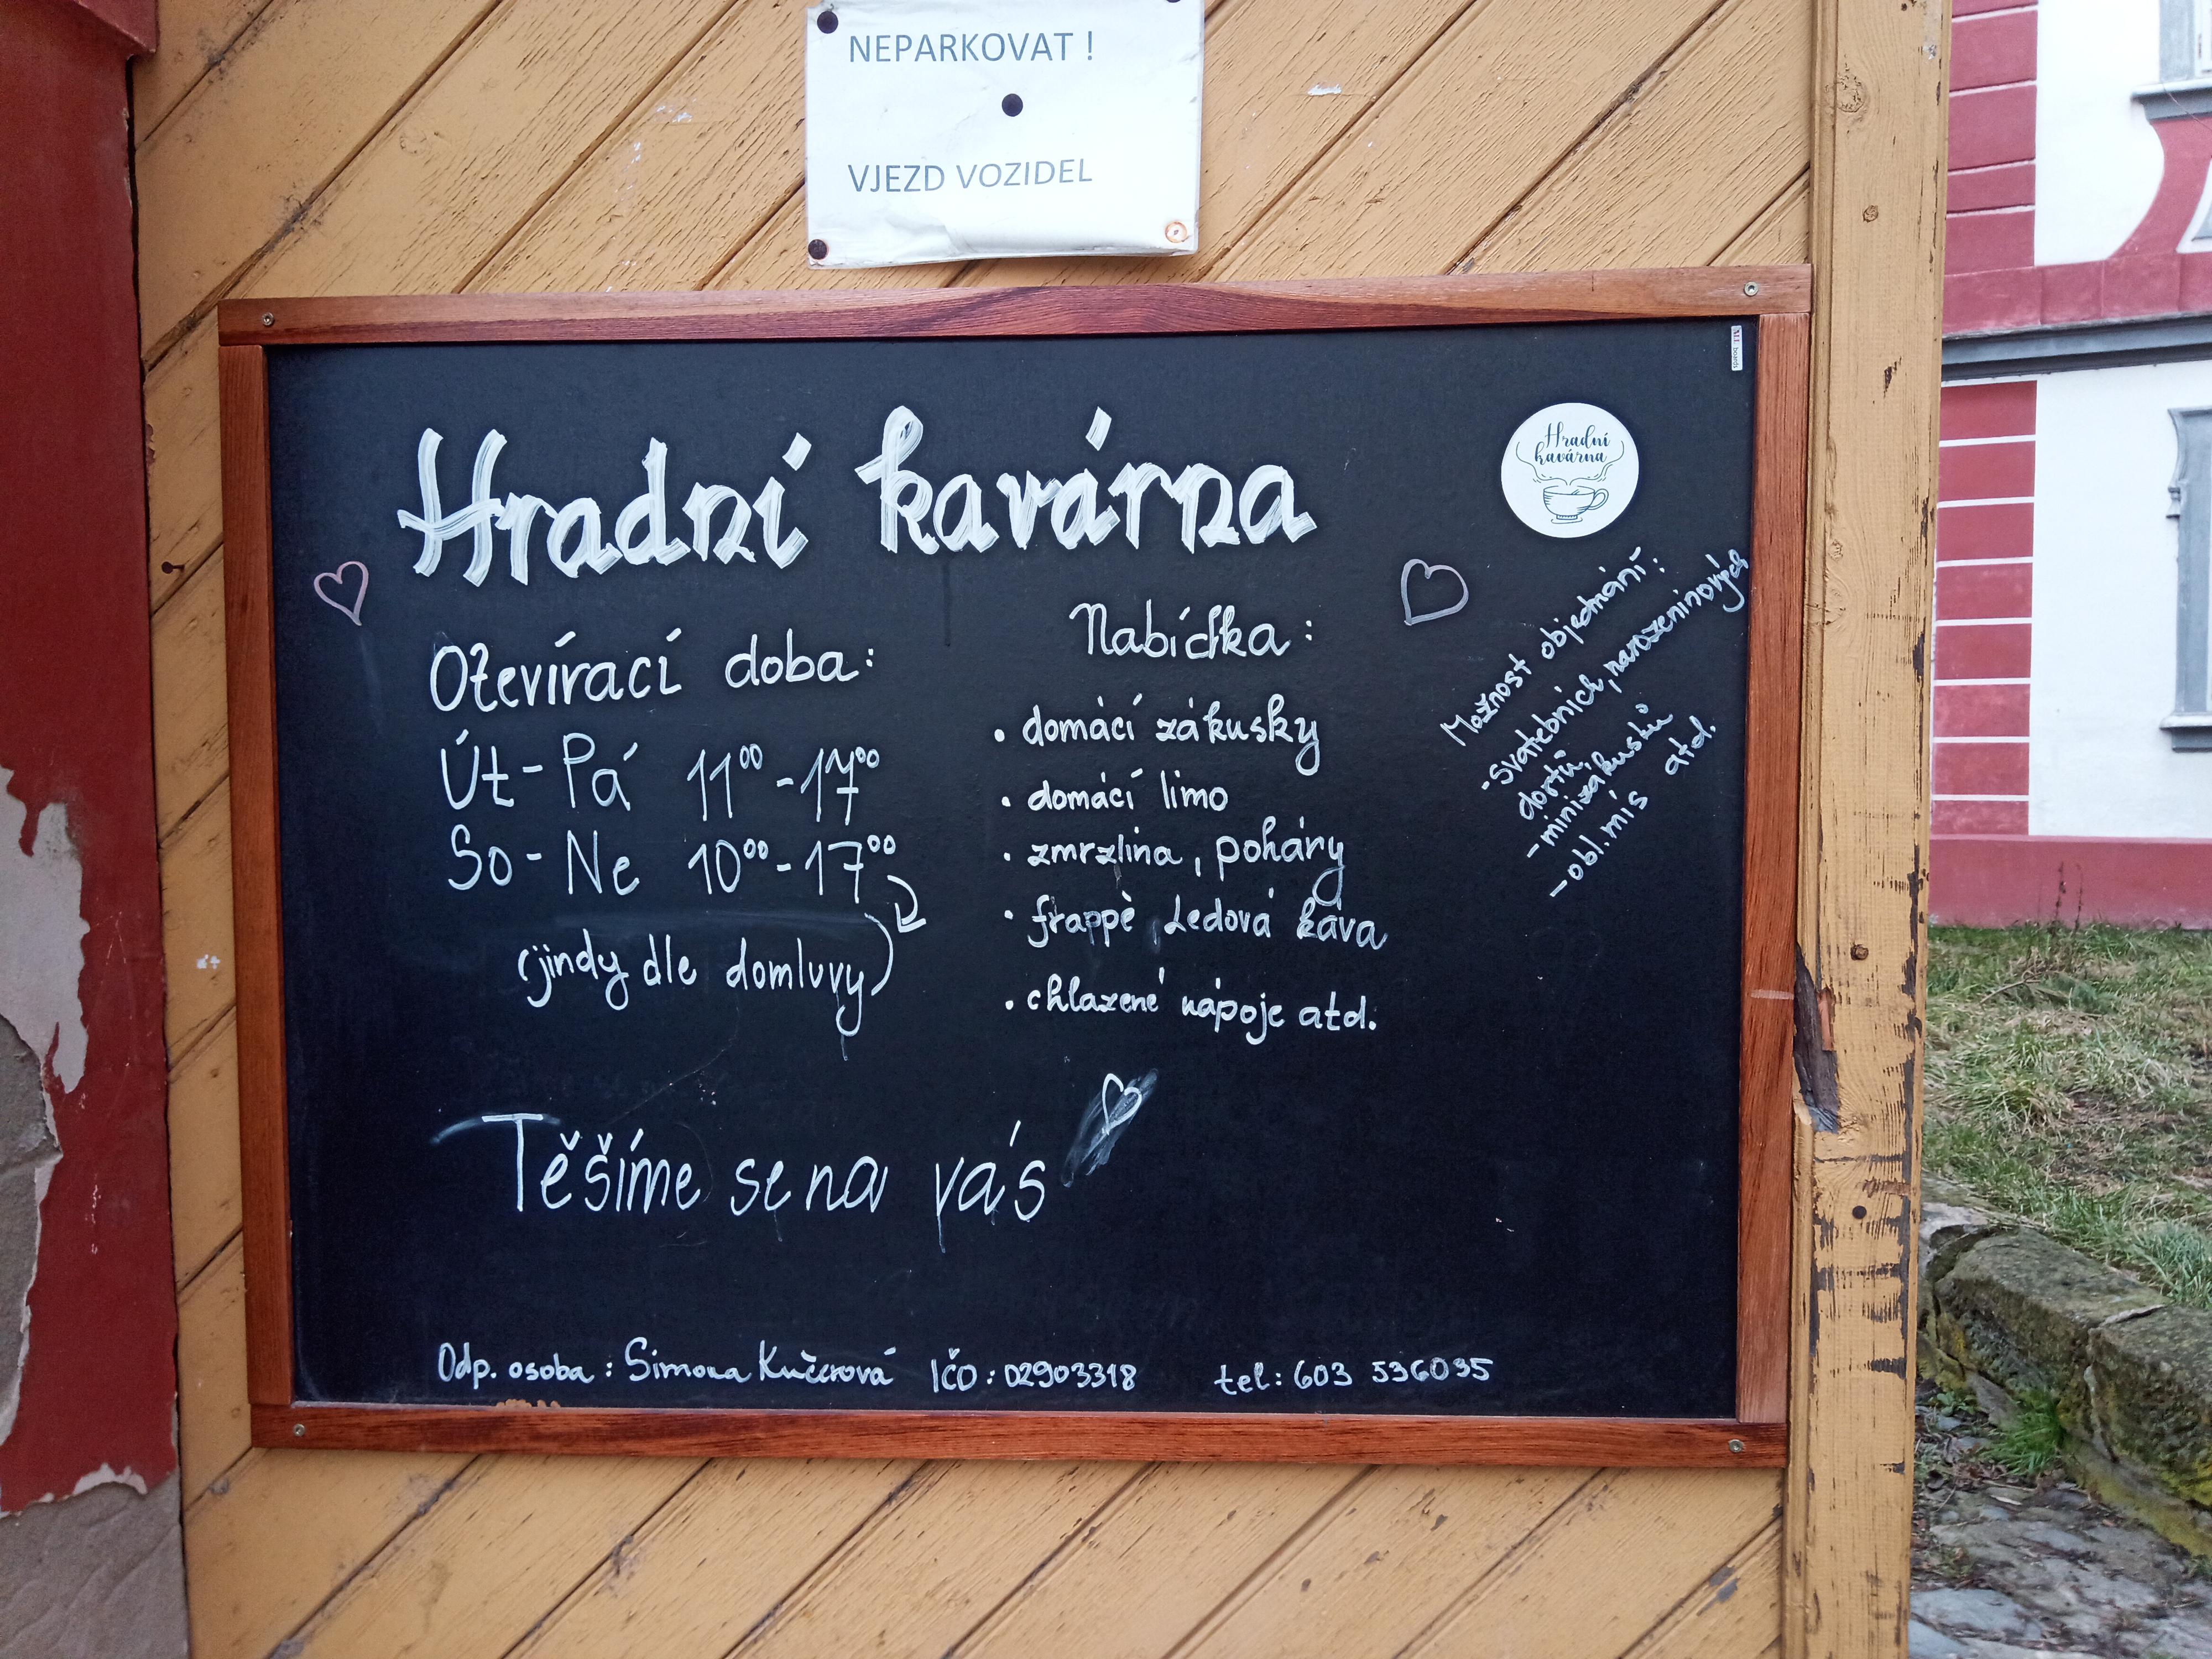 NEPARKOVAT !
VJEZD VOZIDEL
Hradní kavárna
Hradní
kavárna
Otevírací doba:
Út - Pá 11⁰⁰ - 17⁰⁰
So - Ne 10⁰⁰ - 17⁰⁰
(jindy dle domluvy)
Nabídka:
• domácí zákusky
• domácí limo
• zmrzlina, poháry
• frappè, Ledová káva
• chlazené nápoje atd.
Možnost objednání:
- svatebních, narozeninových
dortů,
- minizákusků
- obl. mís atd.
Těšíme se na vás
Odp. osoba: Simona Kučerová IČO: 02903318 tel: 603 536035